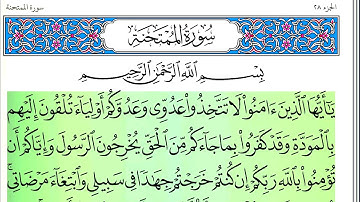 الجزء ٢٨
سورة الممتحنة
سُورَةُ المُمْتَحنَةِ
بِسْمِ اللَّهِ الرَّحْمَٰنِ الرَّحِيمِ
يَٰٓأَيُّهَا ٱلَّذِينَ ءَامَنُوا۟ لَا تَتَّخِذُوا۟ عَدُوِّى وَعَدُوَّكُمْ أَوْلِيَآءَ تُلْقُونَ إِلَيْهِم
بِٱلْمَوَدَّةِ وَقَدْ كَفَرُوا۟ بِمَا جَآءَكُم مِّنَ ٱلْحَقِّ يُخْرِجُونَ ٱلرَّسُولَ وَإِيَّاكُمْ أَن
تُؤْمِنُوا۟ بِٱللَّهِ رَبِّكُمْ إِن كُنتُمْ خَرَجْتُمْ جِهَٰدًا فِى سَبِيلِى وَٱبْتِغَآءَ مَرْضَاتِى ۚ